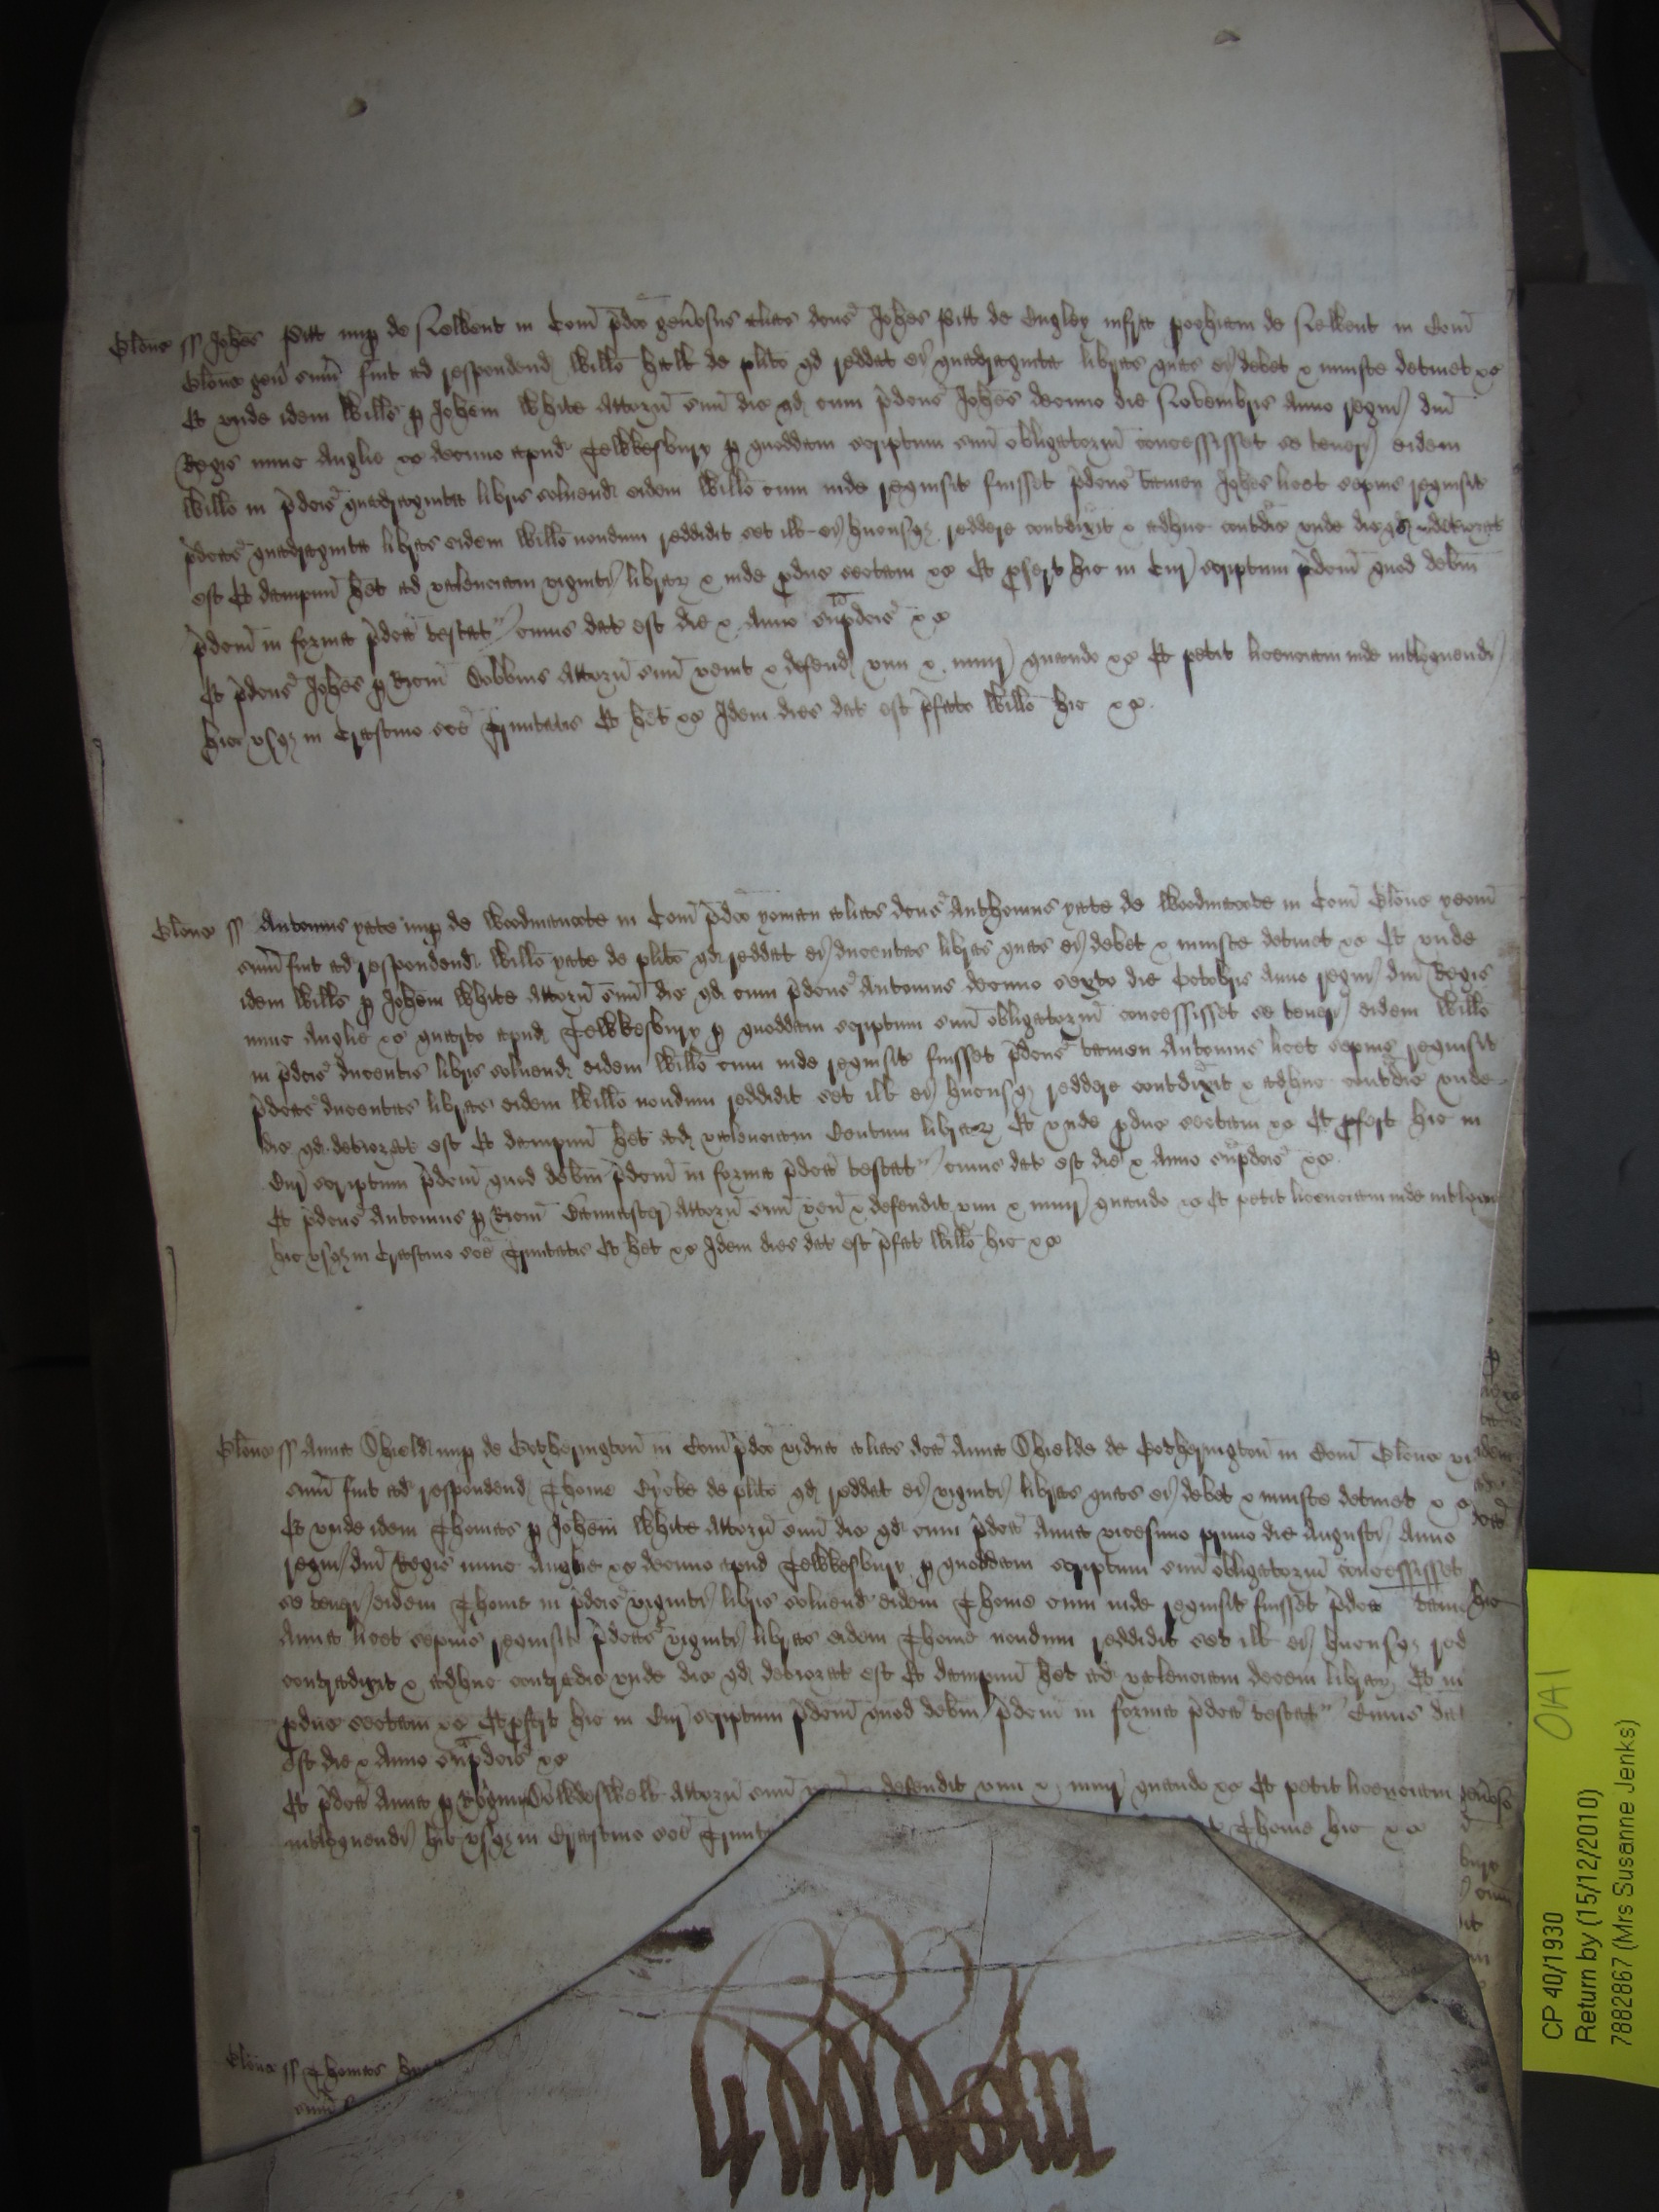 Glouc ss Johes Pitt nup de Newent in Com p̄dco gen̄osus alias dcus Johes Pitt de infra pochiam de Newent in Com
Glouc gen̄ sum̄ fuit ad respondend Willo Hill de plito qd reddat ei quadraginta libras quas ei debet & iniuste detinet &c
Et unde idem Willus p Johem White Attorn̄ suū dic qd cum p̄dcus Johes decimo die Novembris Anno regni dn̄i
Regis nunc Anglie &c decimo apud Tewkesbury p quoddam scriptum suū obligatoriū concessisset se teneri eidem
Willo in p̄dcis quadraginta libris solvend eidem Willo cum inde requisit fuisset p̄dcus tamen Johes licet sepius requisit
p̄dcas quadraginta libras eidem Willo nondum reddidit set ill ei hucusq reddere contdixit & adhuc contdic unde dic qd deteriorat
est Et dampnū het ad valenciam viginti librar & inde produc sectam &c Et profert hic in Cur scriptum p̄dcm̄ quod debm̄
p̄dcm̄ in forma p̄dca testat cuius dat est die & Anno sup̄dcis &c
Et p̄dcus Johes p Ricm̄ Dobbins Attorn̄ suū venit & defend vim & iniur quando &c Et petit licenciam inde intloquendi
hic usq in Crastino sce Trinitatis Et het &c Idem dies dat est p̄fato Willo hic &c
Glouc ss Antonius yate nup de Woodmancote in Com p̄dco yoman alias dcus Anthonius yate de Woodmacote in Com Glouc yeom̄
sum̄ fuit ad respondend Willo yate de plito qd reddat ei ducentas libras quas ei debet & iniuste detinet &c Et unde
idem Willus p Johem White Attorn̄ suū dic qd cum p̄dcus Antonius decimo sexto die Octobris Anno regni dn̄i Regis
nunc Anglie &c quarto apud Tewkesbury p quoddam scriptum suū obligatoriū concessisset se teneri eidem Willo
in p̄dcis ducentis libris solvend eidem Willo cum inde requisit fuisset p̄dcus tamen Antonius licet sepius requisit
p̄dcas ducentas libras eidem Willo nondum reddidit set ill ei hucusq reddere contdixit & adhuc contdic unde
dic qd deteriorat est Et dampnū het ad valenciam Centum librar Et unde produc sectam &c Et profert hic in
Cur scriptum p̄dcm̄ quod debm̄ p̄dcm̄ in forma p̄dca testat cuius dat est die & Anno sup̄dcis &c
Et p̄dcus Antonius p Ricm̄ Attorn̄ suū ven̄ & defendit vim & iniur quando &c Et petit licenciam inde intloquen
hic usq in Crastino sce Trinitatis Et het &c Idem dies dat est p̄fat Willo hic &c
Glouc ss Anna Shield nup de Gotherington in Com p̄dco vidua alias dca Anna Shielde de Gotherington in Com Glouc vi
sum̄ fuit ad respondend Thome de plito qd reddat ei viginti libras quas ei debet & iniuste detinet &c
Et unde idem Thomas p Johem White Attorn̄ suū dic qd cum p̄dca Anna vicesimo primo die Augusti Anno
regni dn̄i Regis nunc Anglie &c decimo apud Tewkesbury p quoddam scriptum suū obligatoriū concessisset
se teneri eidem Thome in p̄dcis viginti libris solvend eidem Thome cum inde requisit fuisset p̄dca tamen
Anna licet sepius requisit p̄dcas viginti libras eidem Thome nondum reddidit set ill ei hucusq red
contradixit & adhuc contradic unde dic qd deteriorat est Et dampnū het ad valenciam decem librar Et in
produc sectam &c Et profert hic in Cur scriptum p̄dcm̄ quod debm̄ p̄dcm̄ in forma p̄dca testat Cuius dat
est die & Anno sup̄dcis &c
Et p̄dca Anna p Attorn̄ suū defendit vim & iniur quando &c Et petit licenciam
intloquendi hic usq in Crastino sce Trinita Thome hic &c
Glouc ss Thomas
sum̄
CP 40/1930
Return by (15/12/2010)
7882867 (Mrs Susanne Jenks)